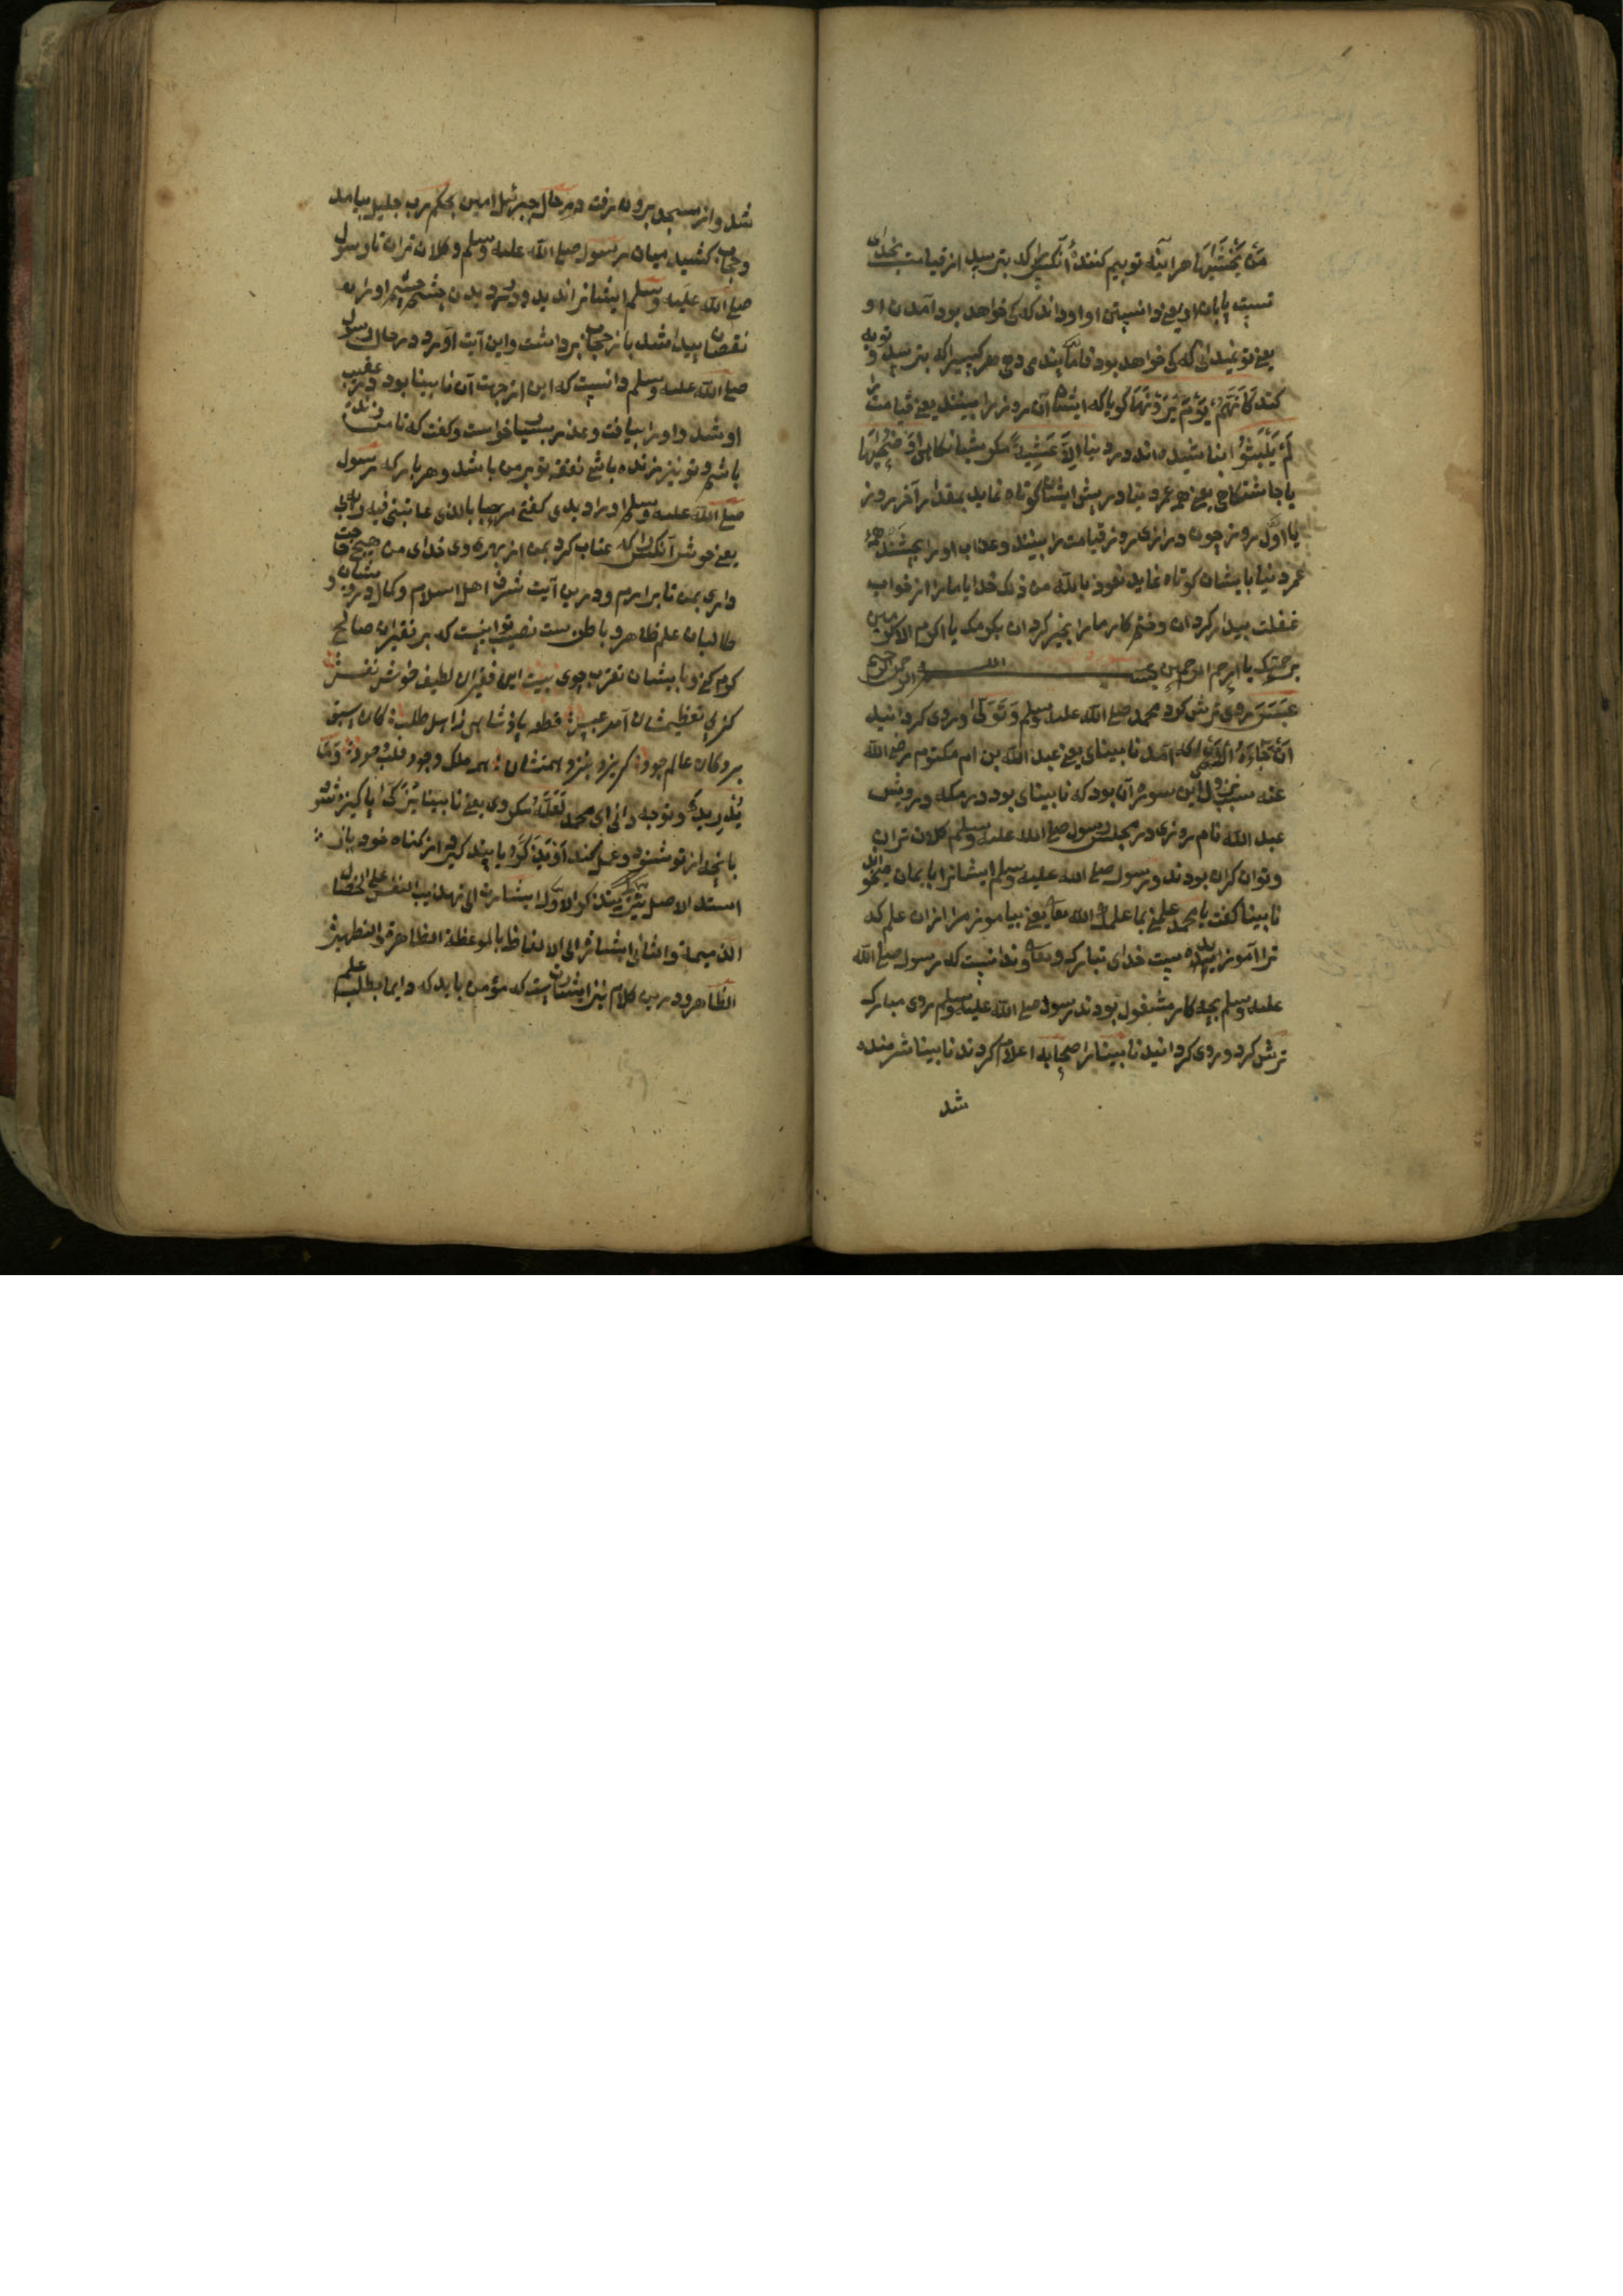 مَنْ يَخْشَيهَا هر آینه تو بیم کنندهٔ آنکس را که بترسید از قیامت بخدای
تست پایان او یعنی دانستن او او داند که کی خواهد بود آمدن او
یعنی تو نمیدانی که کی خواهد بود تا ما پند می دهی هر کسیرا که بترسد و توبه
کند كَأَنَّهُمْ يَوْمَ يَرَوْنَهَا گویا که ایشان آن روز را بینند یعنی قیامت را
لَمْ يَلْبَثُوا نباشیده اند در دنیا إِلَّا عَشِيَّةً مگر شبانکاهی أَوْ ضُحَيهَا
یا چاشتکاهی یعنی همه عمر دنیا در پیش ایشان کوتاه نماید بمقدار آخر روز
یا اوّل روز چون درازی روز قیامت را بینند و عذاب او را بچشند همه
عمر دنیا بایشان کوتاه نماید نعوذ بالله من ذلک خدایا ما را از خواب
غفلت بیدار کردان و ختم کار ما را بخیر کردان بکرمک یا اکرم الاکرمین
برحمتک یا ارحم الرحمین بسم الله الرحمن الرحیم
عَبَسَ روی ترش کرد محمد صلی الله علیه وسلم وَتَوَلَّى و روی کردانید
أَنْ جَاءَهُ الْأَعْمَى که آمد نابینای یعنی عبد الله بن ام مکتوم رضی الله
عنه سبب نزول این سوره آن بود که نابینای بود در مکه درویش
عبد الله نام روزی در مجلس رسول صلی الله علیه وسلم کلان تران
و توان کران بودند و رسول صلی الله علیه وسلم ایشانرا بایمان میخواند
نابینا کفت یا محمد علمنی بما علمک الله یعنی بیاموز مرا از ان علم که
ترا آموزانیده است خدای تبارک و تعالی و ندانست که رسول صلی الله
علیه وسلم بچه کار مشغول بودند رسول صلی الله علیه وسلم روی مبارک
ترش کرد و روی کردانید نابینا را صحابه اعلام کردند نابینا شرمنده
شد
شد و از مسجد بیرون رفت در حال جبرئیل امین بحکم رب جلیل بیامد
و حجاب کشید میان رسول صلی الله علیه وسلم و کلان تران تا رسول
صلی الله علیه وسلم ایشانرا ندید و در دیدن چشم او را
نقصان پیدا شد باز حجاب برداشت و این آیت آورد در حال رسول
صلی الله علیه وسلم دانست که این از جهت آن نابینا بود در عقب
او شد و او را بیافت و عذر بسیار خواست و کفت که تا من زنده
باشم و تو نیز زنده باشی نفقه تو بر من باشد و هر بار که رسول
صلی الله علیه وسلم او را دیدی کفتی مرحبا بالذی عاتبنی فیه ربی
یعنی خوش آنکس که عتاب کرد بمن از بهر وی خدای من هیچ حاجت
داری بمن تا برارم و درین آیت شرف اهل اسلام و کمال درویشان و
طالبان علم ظاهر و باطن ست نصیب تو اینست که بر فقیران صالح
کرم کنی و بایشان تقرب جوی بیت این فقیران لطیف خوش نفس
کز پی تعظیمشان آمد عبس قطعه پادشاهی ز اهل طلب
عالم جود کر بزد بهمتشان همه ملک وجود وَمَا
يُدْرِيكَ و توچه دانی ای محمد لَعَلَّهُ مکر وی یعنی نابینا يَزَّكَّى پاکیزه شود
بانچه از تو شنود و عمل کند أَوْ يَذَّكَّرُ یا پند کیرد از کناه خود باز
الاصل یتزکی یتذکر الاول اشارت الی تهذیب النفس
الذمیمة والثانی اشارة الی الاتعاظ بالموعظة الظاهرة والتطهیر
الظاهر و درین کلام نیز ایشانست که مؤمن باید که دایم بطلب علم